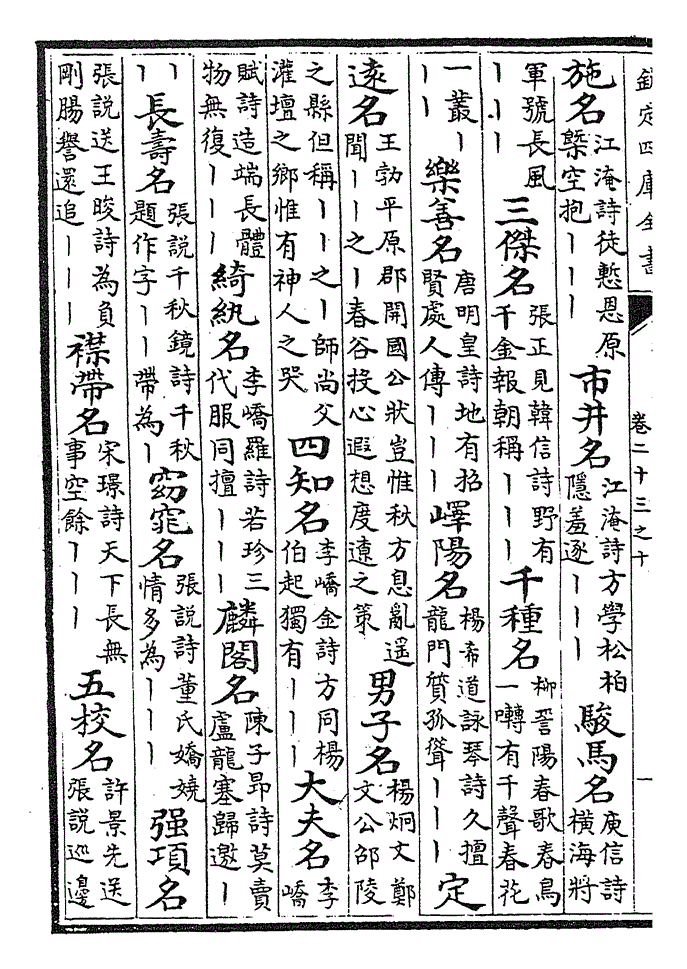 欽定四庫全書
卷二十三之十
施名江淹詩徒慙恩原槩空抱｜｜｜市井名江淹詩方學松柏隱羞逐｜｜｜駿馬名庾信詩橫海將
軍號長風｜｜｜三傑名張正見韓信詩野有千金報朝稱｜｜｜千種名柳䛒陽春歌春鳥一囀有千聲春花
一叢｜｜｜樂善名唐明皇詩地有招賢處人傳｜｜｜嶧陽名楊希道詠琴詩久擅龍門質孤聳｜｜｜定
遠名王勃平原郡開國公狀豈惟秋方息亂遥聞｜｜之｜春谷投心遐想度遼之策男子名楊炯文鄭文公邵陵
之縣但稱｜｜之｜師尚父灌壇之鄉惟有神人之哭四知名李嶠金詩方同楊伯起獨有｜｜｜大夫名李嶠
賦詩造端長體物無復｜｜｜綺紈名李嶠羅詩若珍三代服同擅｜｜｜麟閣名陳子昂詩莫賣盧龍塞歸邀｜
｜｜長壽名張說千秋鏡詩千秋題作字｜｜帶為｜窈窕名張說詩董氏嬌嬈情多為｜｜｜强項名
張說送王晙詩為負剛腸譽還追｜｜｜襟帶名宋璟詩天下長無事空餘｜｜｜五校名許景先送張說巡邊